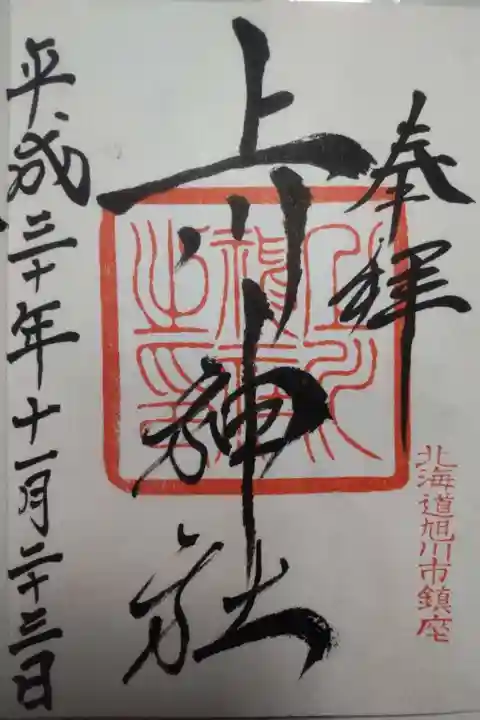 奉拝
北海道旭川市鎮座
上川神社
上川
神社
之印
平成三十年十一月二十三日